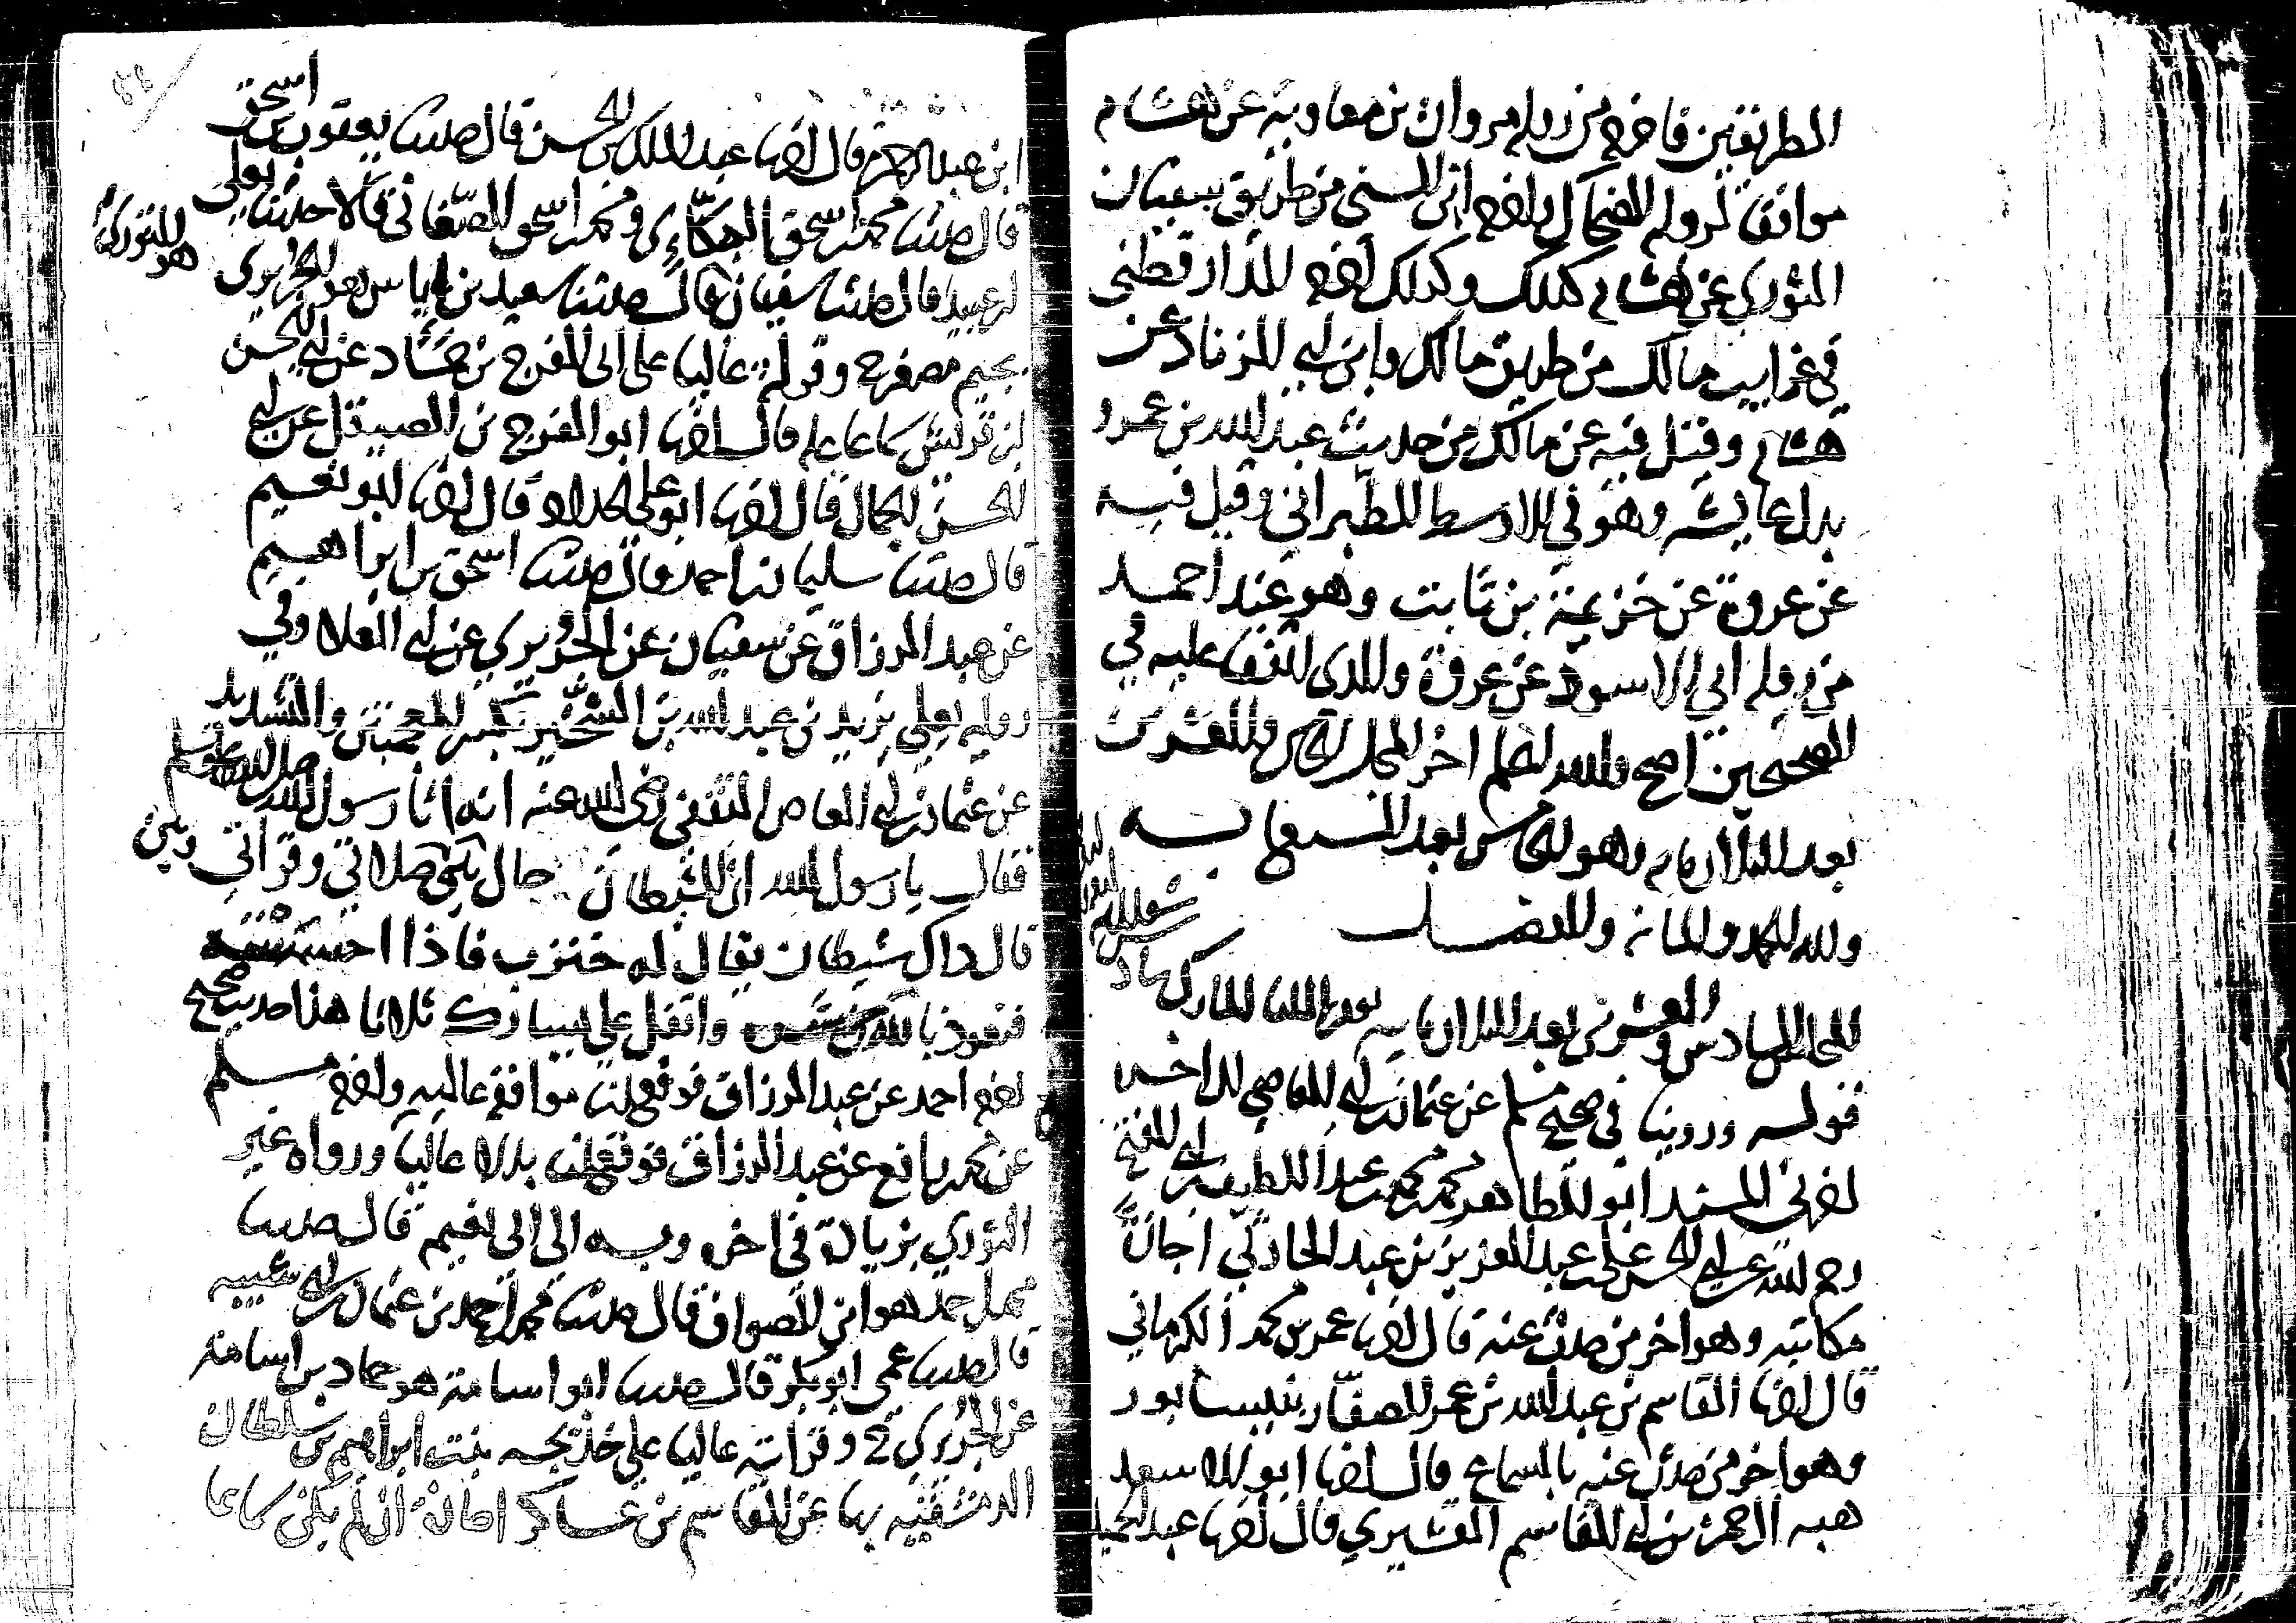 الطريقين فاخرجه من رواية مروان بن معاوية عن هشام
موافقا لرواية الضحاك واخرجه ابن السني من طريق سفيان
الثوري عن هشام كذلك وكذلك اخرجه الدارقطني
في غرايب مالك من طريق مالك وابن ابي الزناد عن
هشام وقيل فيه عن مالك من حديث عبد الله بن عمرو
بدل عايشه وهو في الاوسط للطبراني وقيل فيه
عن عروة عن خزيمة بن ثابت وهو عند احمد
من رواية ابي الاسود عن عروة والذي اتفق عليه في
الصحيحين اصح والله اعلم اخر المجلس الخامس والعشرين
بعد الثلاثمايه وهو الخامس بعد السبعمايه
ولله الحمد والمنة والفضل
المجلس السادس والعشرين بعد الثلاثمايه
قوله وروينا في صحيح مسلم عن عثمان بن ابي العاصي الى اخره
اخبرني المسند ابو الطاهر محمد بن محمد بن عبد اللطيف
رحمه الله عن ابي الحسن علي بن عبد العزيز بن عبد الحارثي اجازة
مكاتبة وهو اخر من حدث عنه قال اخبرنا عمر بن محمد الكرماني
قال اخبرنا القاسم بن عبد الله بن عمر الصفار بنيسابور
وهو اخر من حدث عنه بالسماع قال اخبرنا ابو الاسعد
هبه الرحمن بن ابي القاسم القشيري قال اخبرنا عبد الحميد
ابن عبد الرحمن قال اخبرنا عبد الملك بن الحسن قال حدثنا يعقوب بن اسحق
قال حدثنا محمد بن اسحق البكاءي ومحمد بن اسحق الصغاني قالا حدثنا يعلى
بن عبيد قال حدثنا سفيان هو الثوري قال حدثنا سعيد بن اياس هو الجريري
بجيم مصغر ح وقراته عاليا على ابي الفرج بن حماد عن ابي الحسن
بن قريش سماعا عليه قال اخبرنا ابو الفرج بن الصيقل عن ابي
الحسن الجمال قال اخبرنا ابو علي الحداد قال اخبرنا ابو نعيم
قال حدثنا سليمان بن احمد قال حدثنا اسحق بن ابراهيم
عن عبد الرزاق عن سفيان عن الجريري عن ابي العلا وفي
رواية يعلى يزيد بن عبد الله بن الشخير بكسر المعجمتين والتشديد
عن عثمان بن ابي العاص الثقفي رضي الله عنه انه اتا رسول الله صلى الله عليه وسلم
فقال يا رسول الله ان الشيطان حال بيني وبين صلاتي وقراتي
قال ذاك شيطان يقال له خنزب فاذا احسسته
فتعوذ بالله واتفل على يسارك ثلاثا هذا حديث صحيح
اخرجه احمد عن عبد الرزاق فوقع لنا موافقة عالية واخرجه مسلم
عن محمد بن رافع عن عبد الرزاق فوقع لنا بدلا عاليا ورواه غير
الثوري بزيادة في اخره وبه الى ابي نعيم قال حدثنا
محمد بن احمد هو ابن الصواف قال حدثنا محمد بن عثمان بن ابي شيبه
قال حدثنا عمي ابو بكر قال حدثنا ابو اسامة هو حماد بن اسامة
عن الجريري ح وقراته عاليا على خديجه بنت ابراهيم بن سلطان
الدمشقيه بها عن القاسم بن عساكر اجازة ان لم يكن سماعا